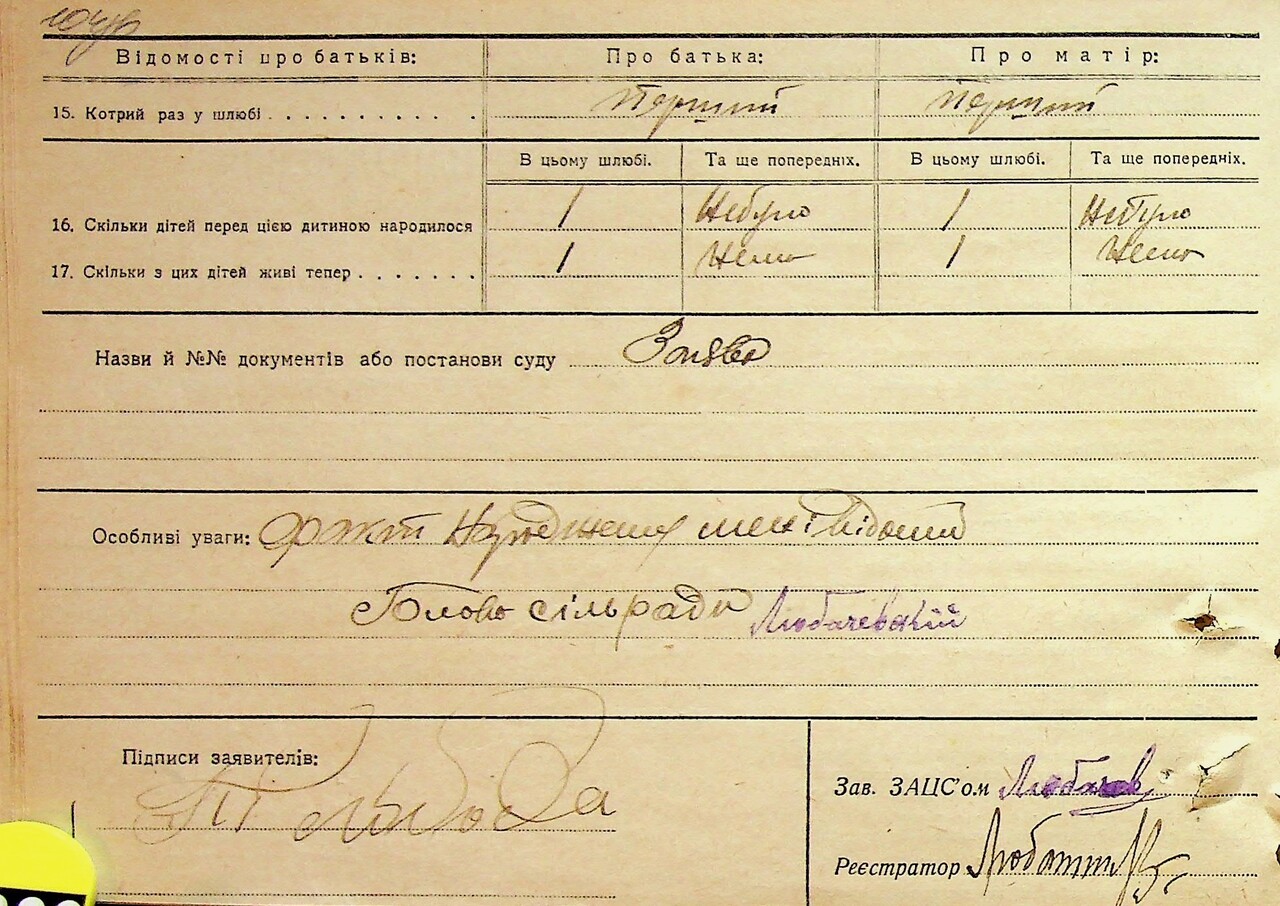 Відомості про батьків: Про батька: Про матір:
15. Котрий раз у шлюбі . . . . . . . . . . . Перший Перший
В цьому шлюбі. Та ще попередніх. В цьому шлюбі. Та ще попередніх.
16. Скільки дітей перед цією дитиною народилося 1 Небуло 1 Небуло
17. Скільки з цих дітей живі тепер . . . . . . . 1 Нема 1 Нема
Назви й №№ документів або постанови суду Заява
Особливі уваги: Факт народження мені відомий
Голова сільради Любачевский
Підписи заявителів:
Зав. ЗАЦС'ом Любачев
Реєстратор